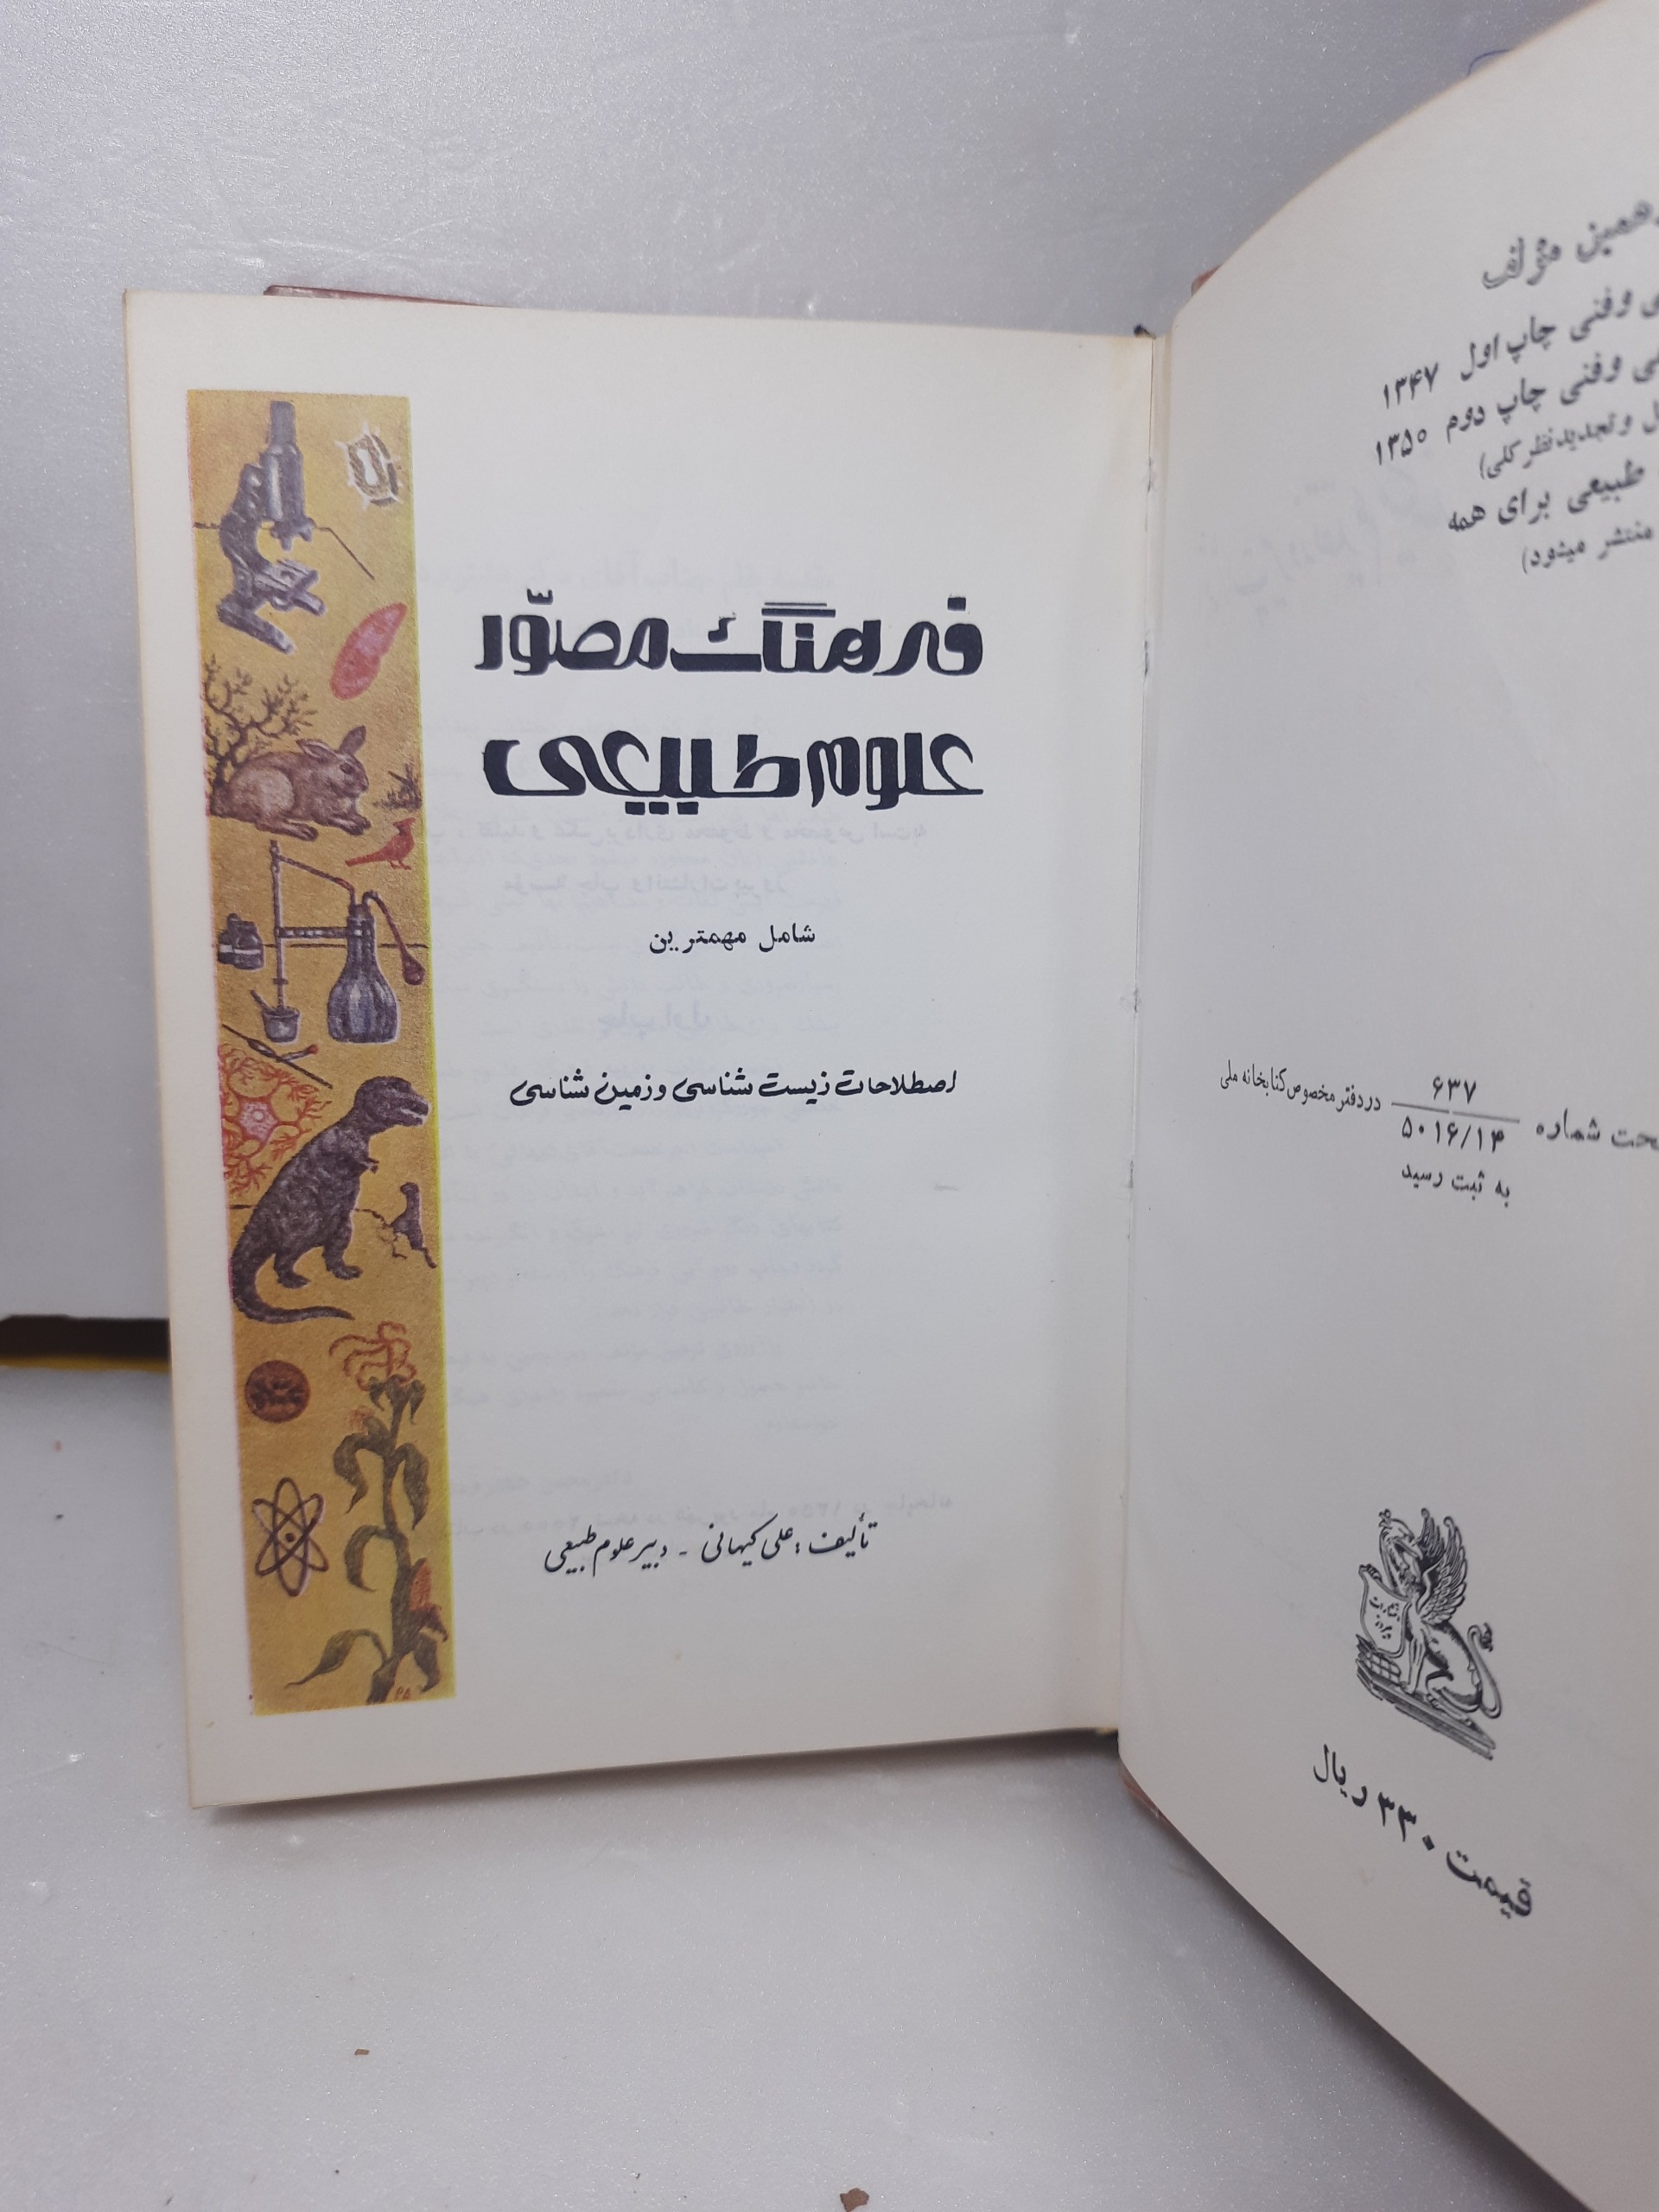 همین مؤلف
وفنی چاپ اول ۱۳۴۷
وفنی چاپ دوم ۱۳۵۰
وتجدیدنظر کلی)
طبیعی برای همه
منتشر میشود)
شماره ۶۳۷ دردفتر مخصوص کتابخانه ملی
۵۰۱۶/۱۴
به ثبت رسید
قیمت ۳۳۰ ریال
فرهنگ مصوّر
علوم طبیعی
شامل مهمترین
اصطلاحات زیست شناسی و زمین شناسی
تألیف: علی کیهانی - دبیر علوم طبیعی